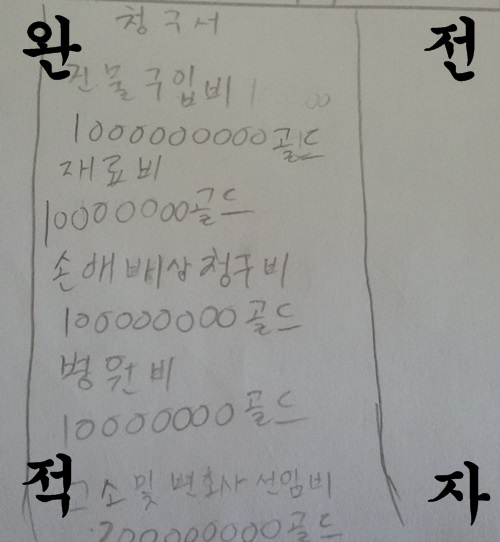 완 전
청구서
건물구입비
1000000000골드
재료비
10000000골드
손해배상청구비
100000000골드
병원비
10000000골드
적 자
고소및 변호사선임비
200000000골드